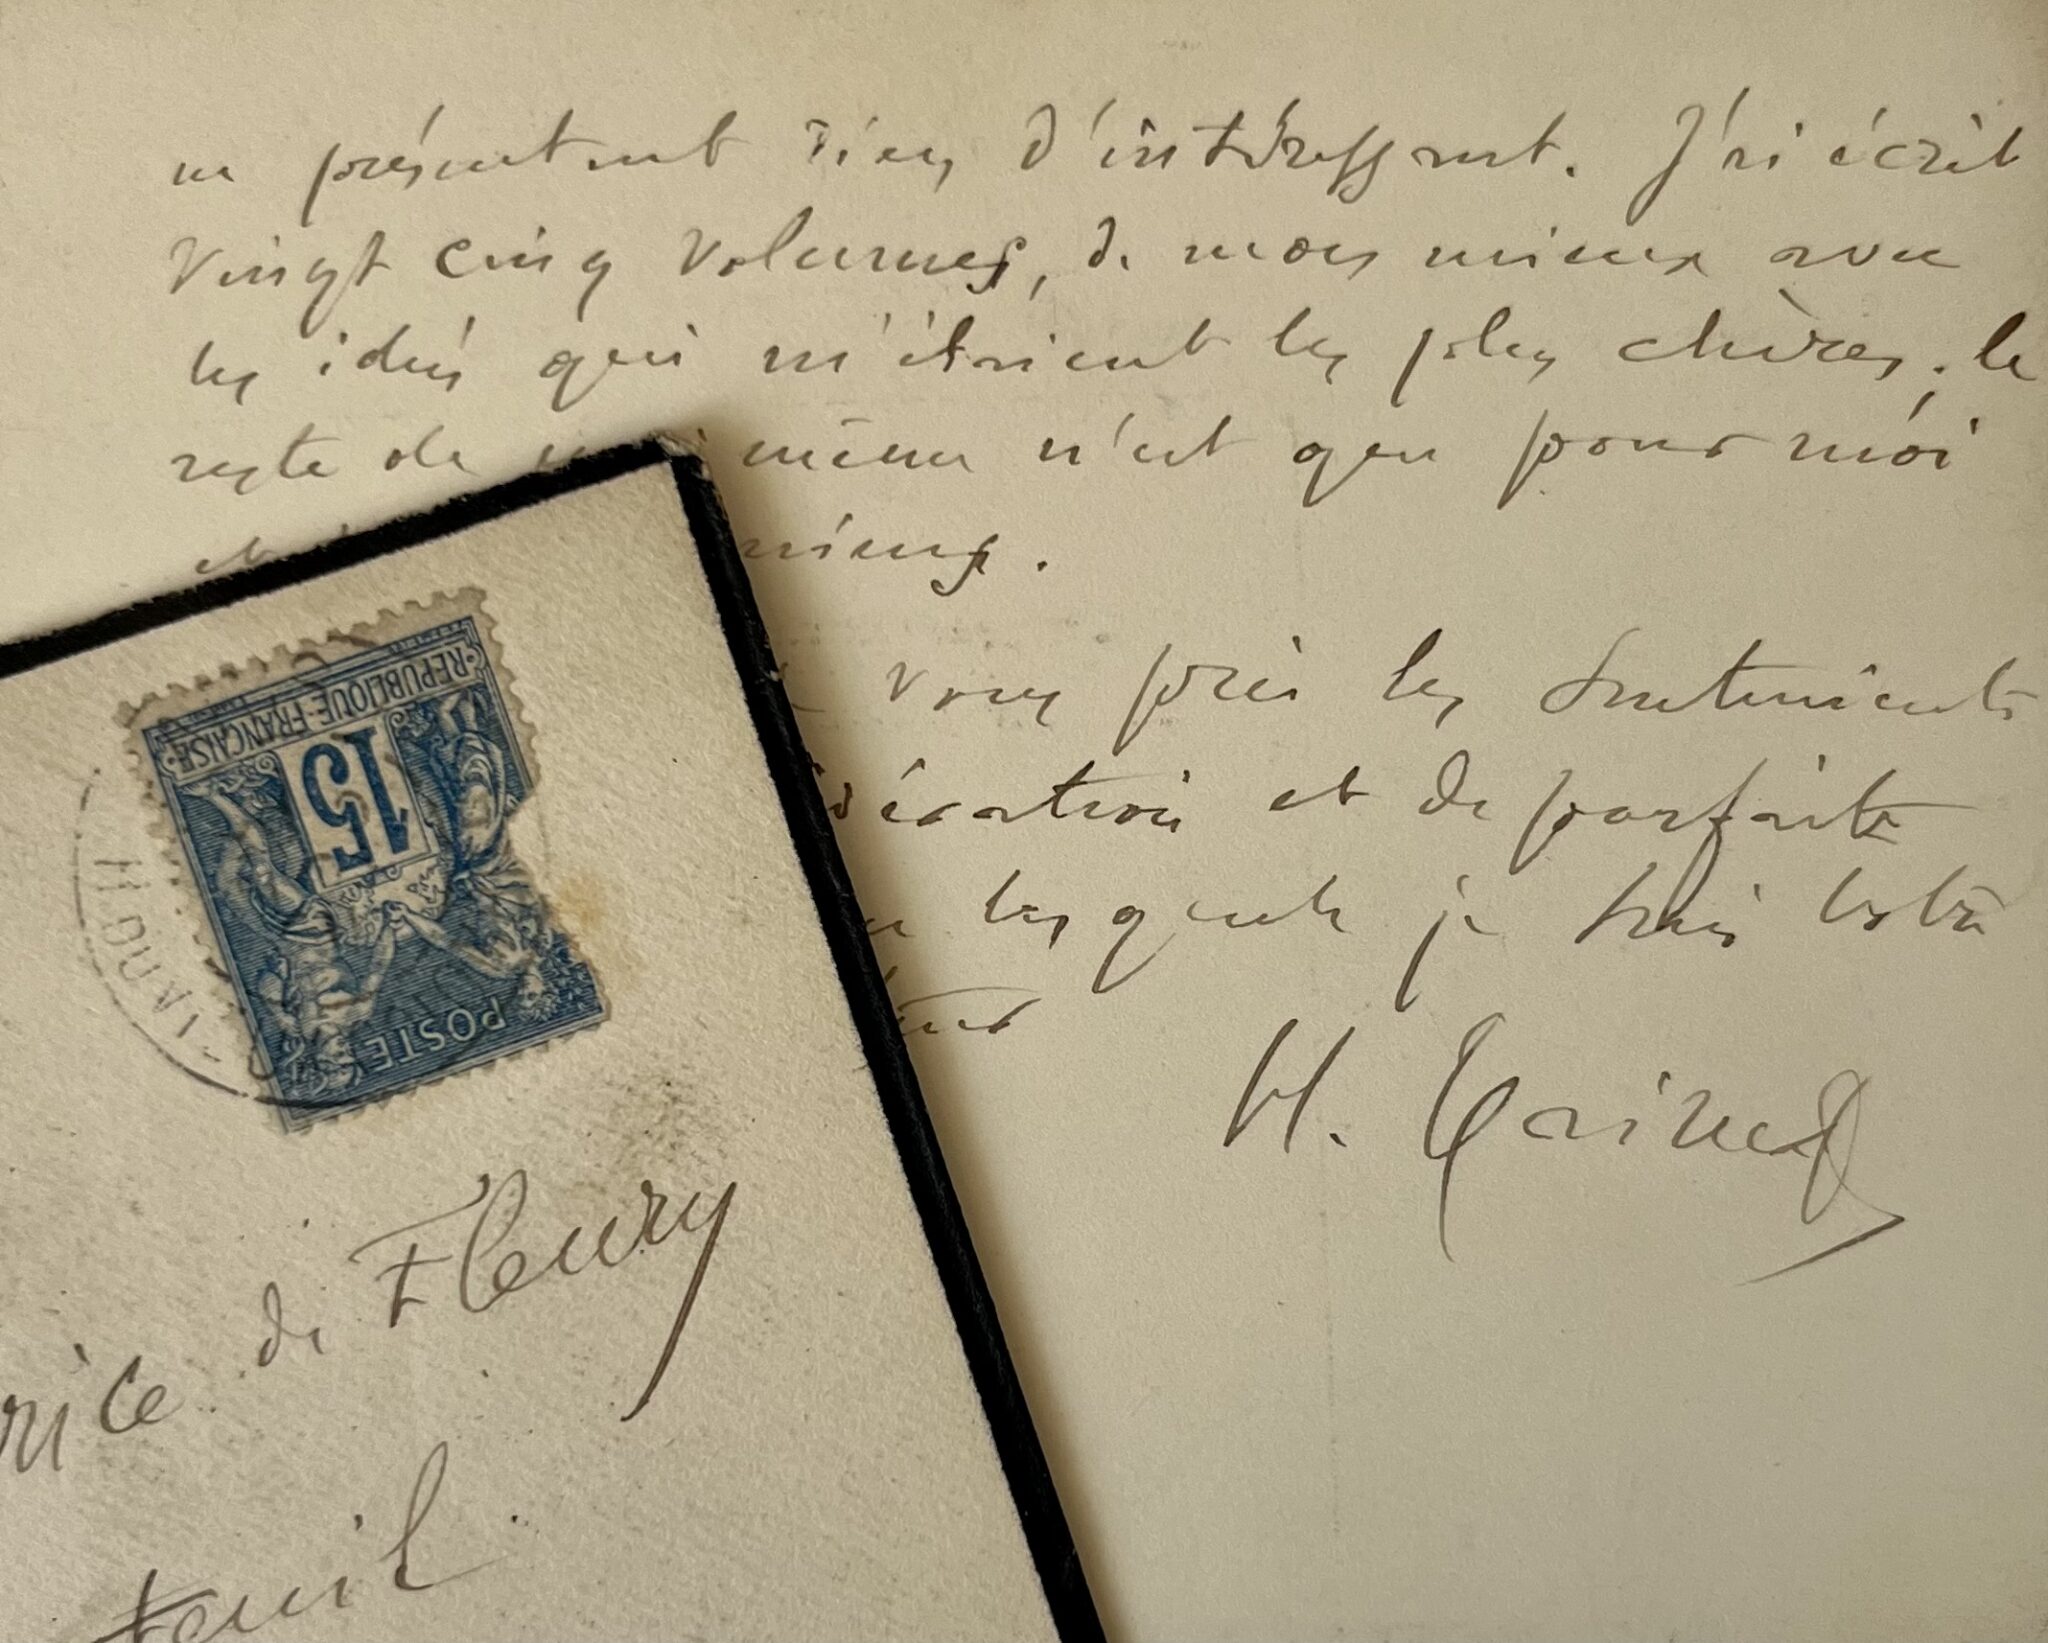 ne présentent rien d'intéressant. J'ai écrit
vingt cinq volumes, de mon mieux avec
les idées qui m'étaient les plus chères ; le
reste de moi même n'est que pour moi
et miens.
vous prie les sentiments
idération et de parfaite
lesquels je suis votre
H. Taine
RÉPUBLIQUE FRANÇAISE
15
POSTE
rice de Fleury
teuil.